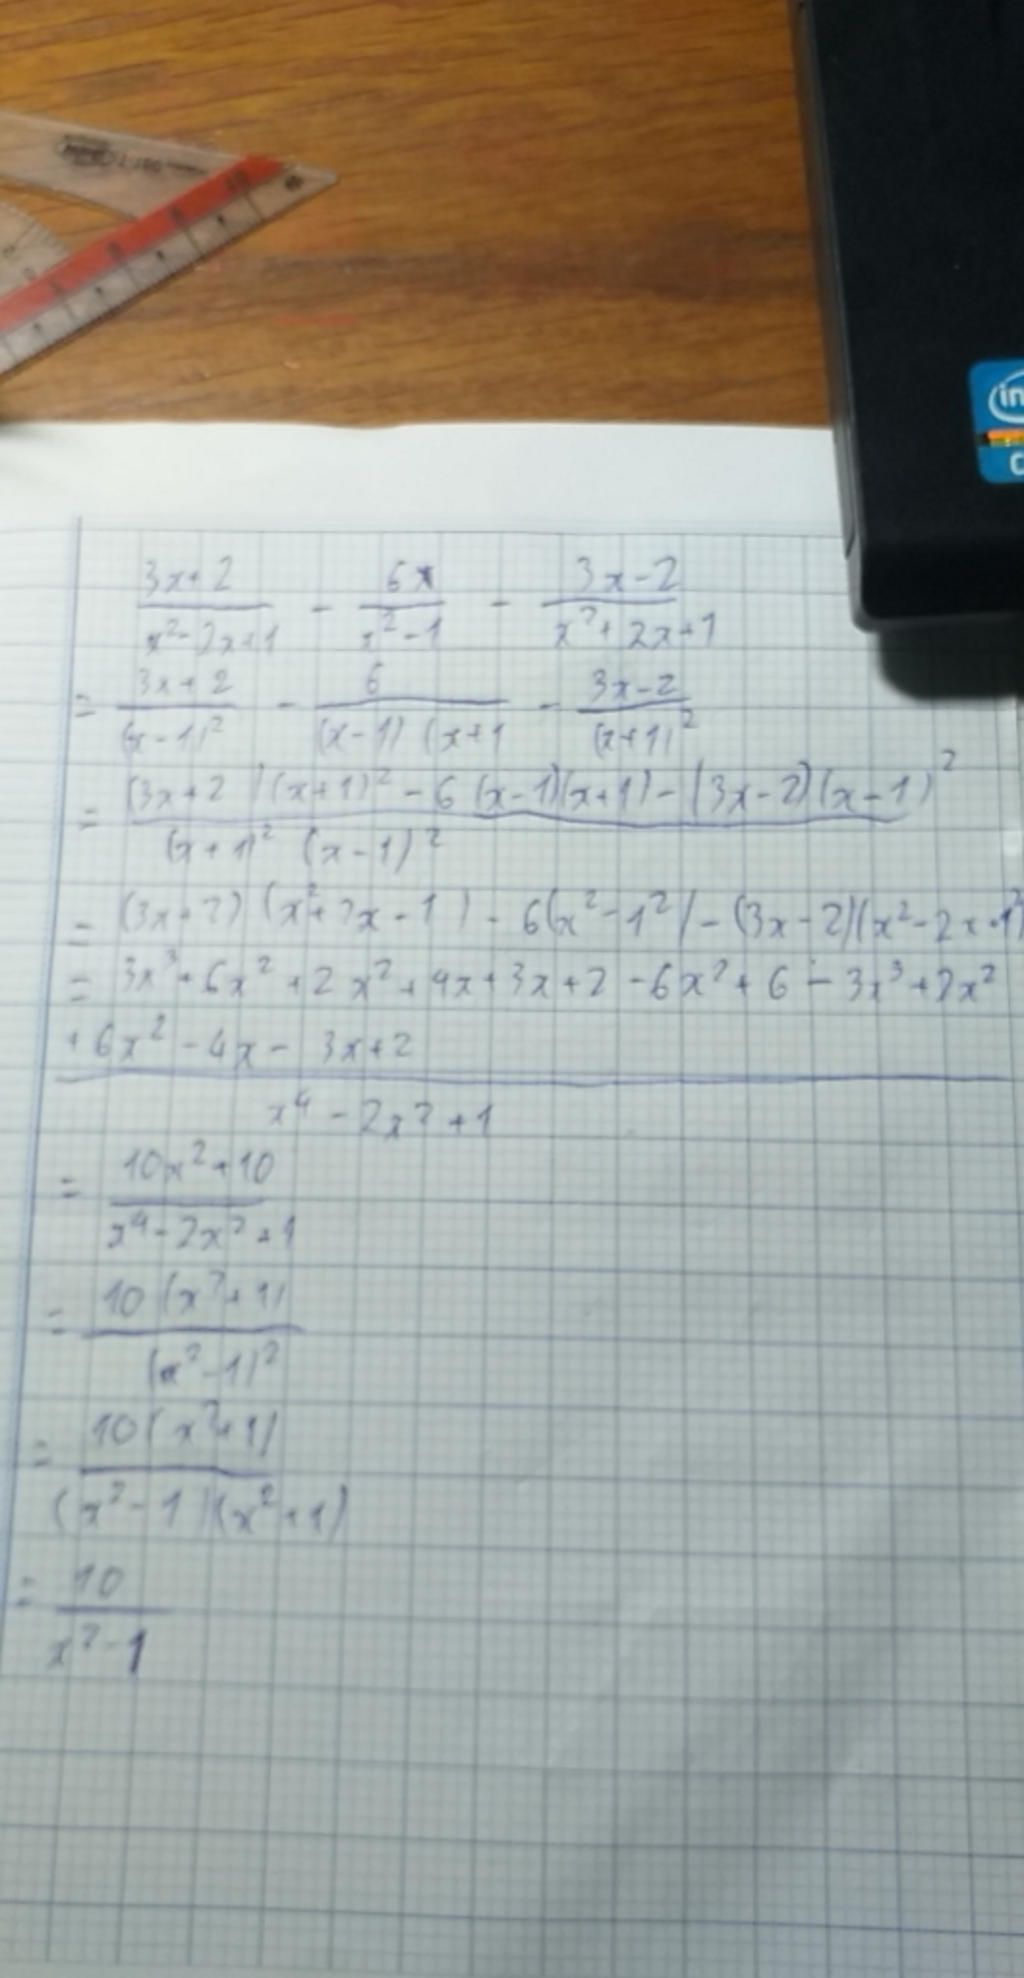 (3x+2)/(x²-2x+1) - 6x/(x²-1) - (3x-2)/(x²+2x+1)
= (3x+2)/(x-1)² - 6/(x-1)(x+1 - (3x-2)/(x+1)²
= (3x+2)(x+1)² - 6(x-1)(x+1) - (3x-2)(x-1)²
(x+1)² (x-1)²
= (3x+2)(x²+2x-1) - 6(x²-1²) - (3x-2)(x²-2x+1²)
= 3x³+6x²+2x²+4x+3x+2-6x²+6-3x³+2x²
+6x²-4x-3x+2
x⁴-2x²+1
= 10x²+10
x⁴-2x²+1
= 10(x²+1)
(x²-1)²
= 10(x²+1)
(x²-1)(x²+1)
= 10
x²-1